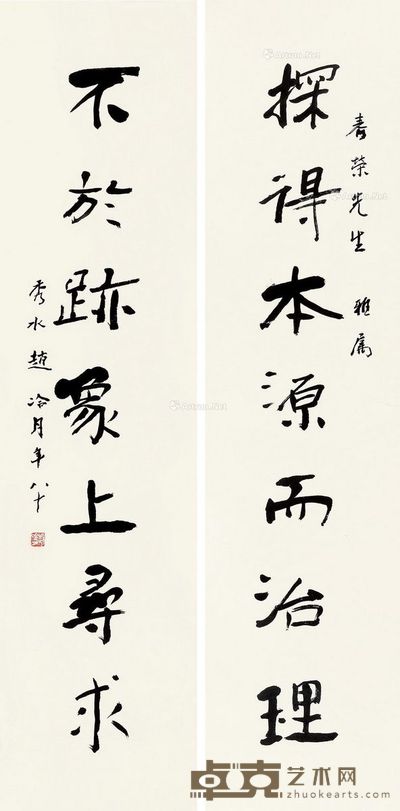 春荣先生 雅属
探得本源而治理
不於跡象上尋求
秀水趙冷月年八十
卓克艺术网
zhuokearts.com